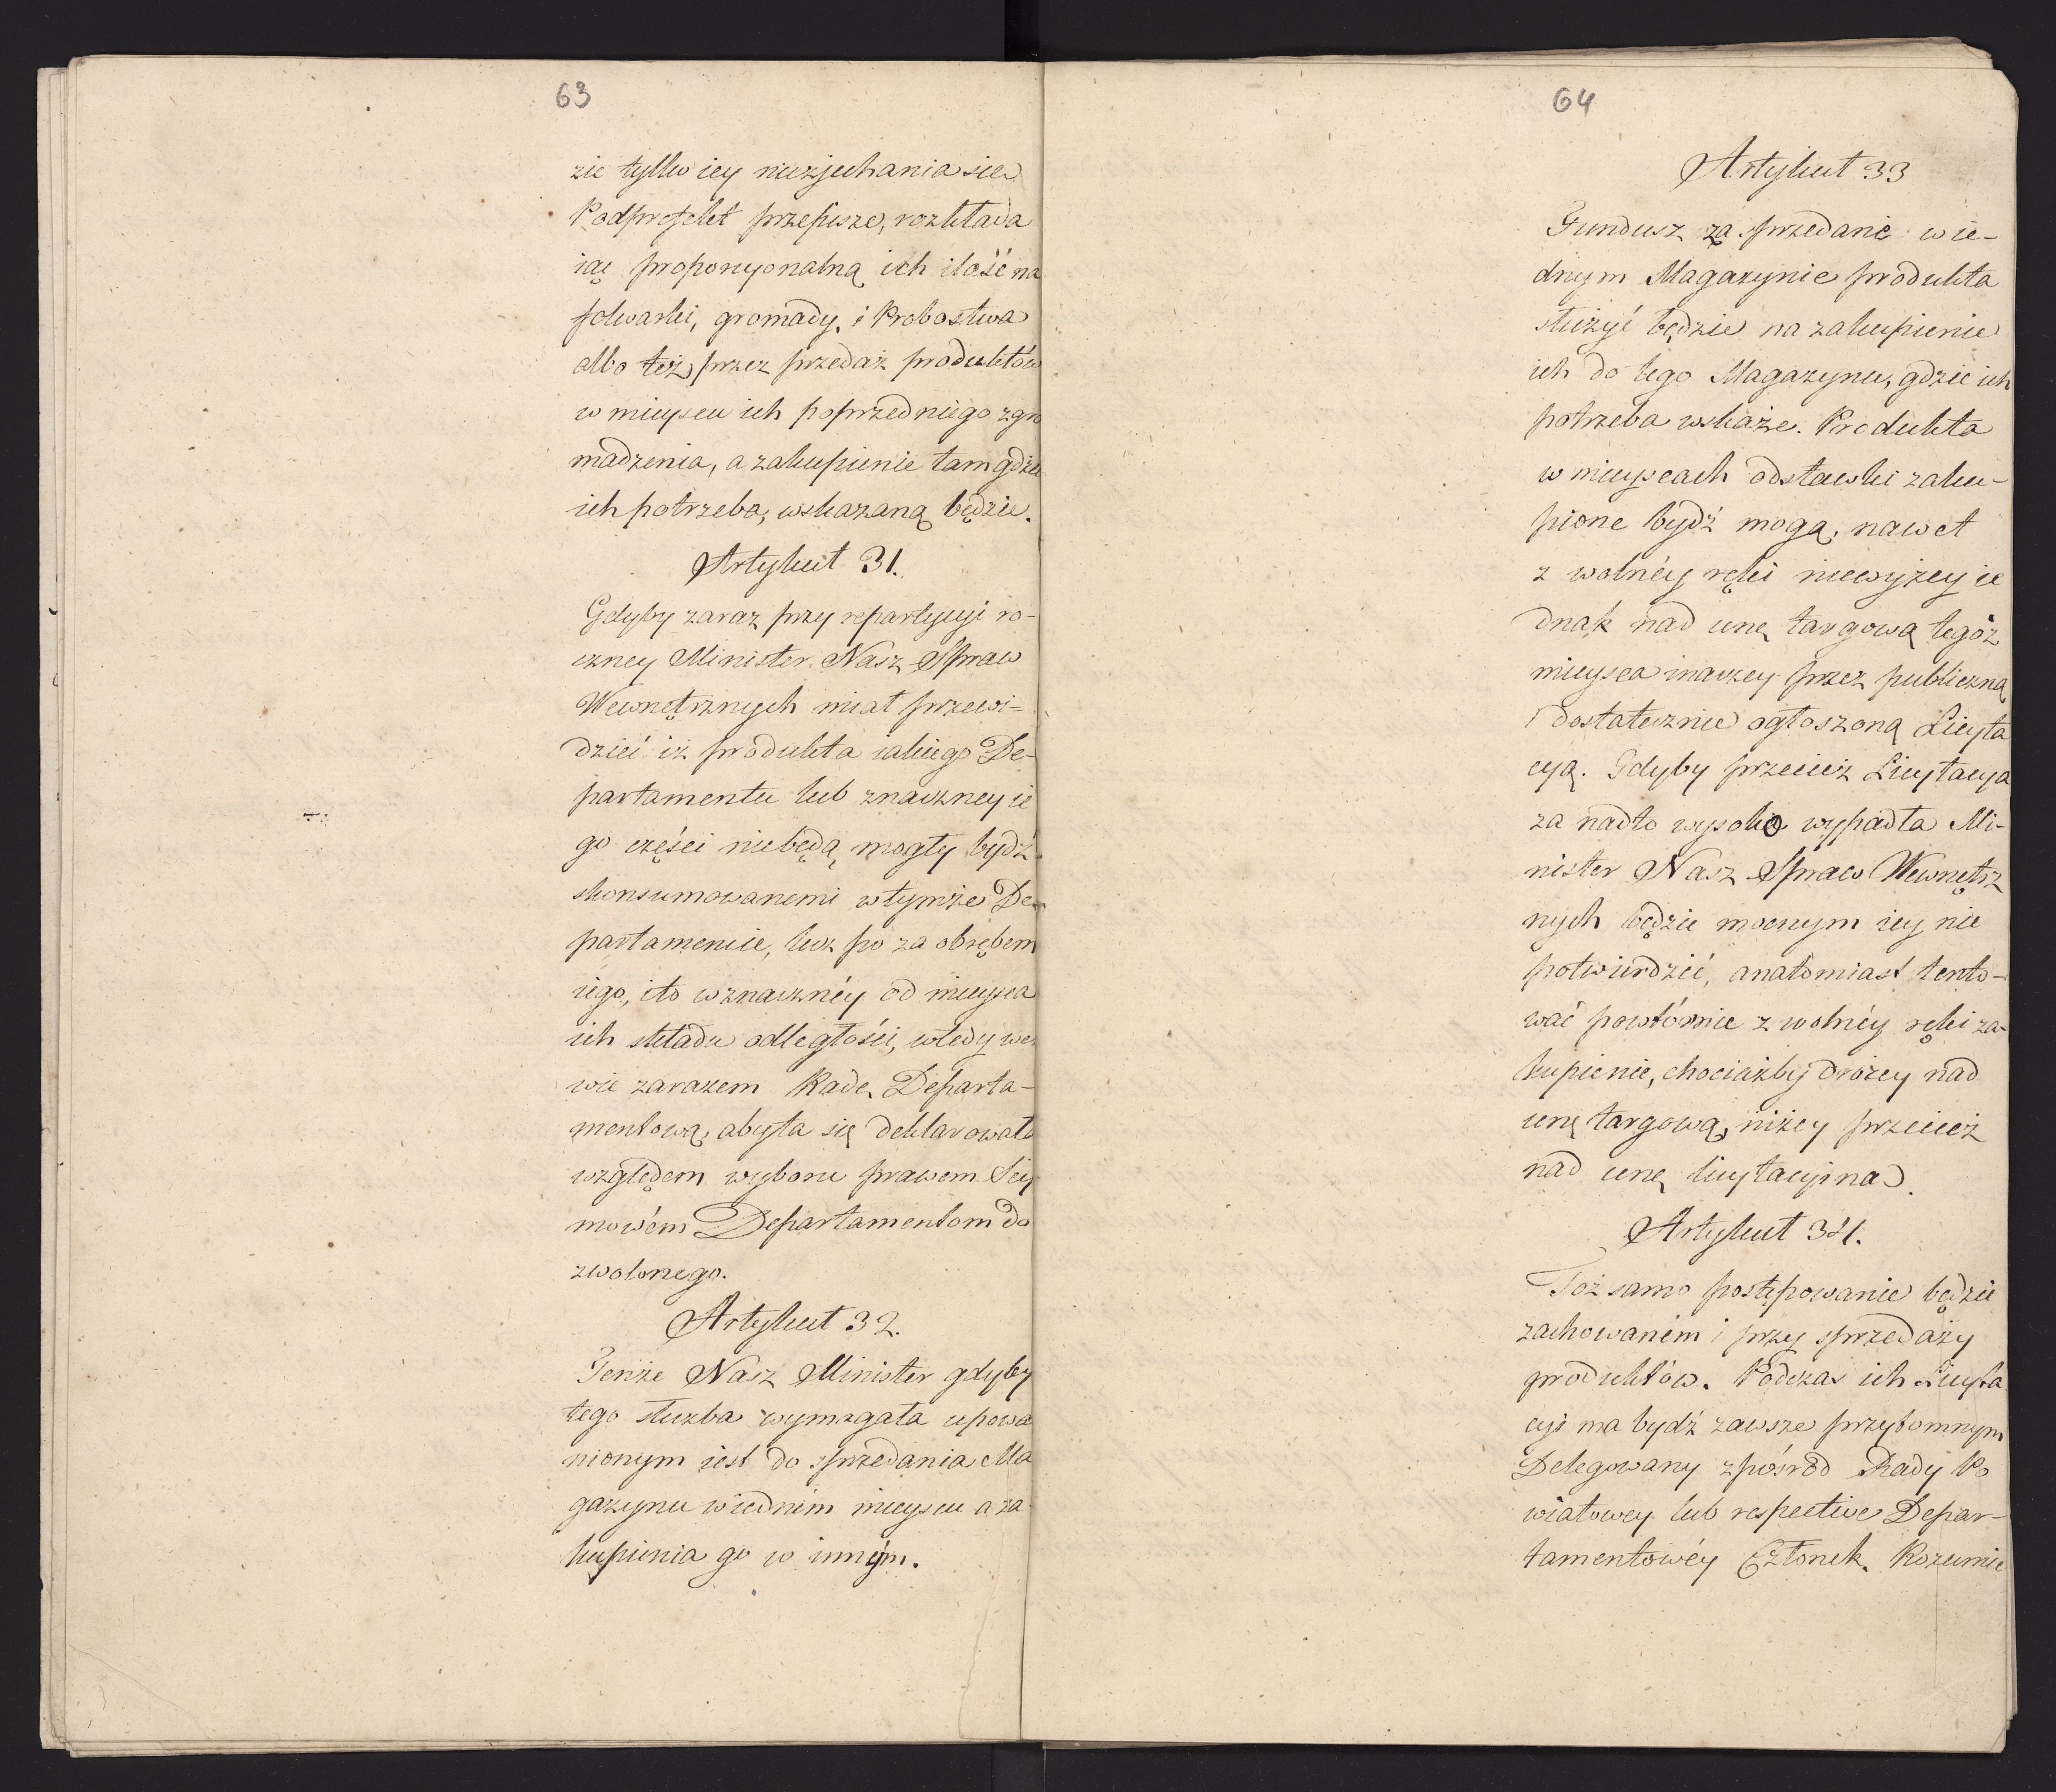 63
zie tylko iey niezjechania sie
Podprefekt przepisze, rozkłada
iąc proporcyonalną ich ilość na
folwarki, gromady, i Probostwa
albo też przez przedaż produktów
w mieyscu ich poprzedniego zgro
madzenia, a zakupienie tam gdzie
ich potrzeba, wskazaną będzie.
Artykuł 31.
Gdyby zaraz przy repartycyi ro-
czney Minister Nasz Spraw
Wewnętrznych miał przewi-
dzieć iż produkta iakiego De-
partamentu lub znaczney ie
go części niebędą mogły bydź
skonsumowanemi w tymże De-
partamencie, lecz po za obrębem
iego, i to w znacznéy od mieysca
ich składu odległości, wtedy we-
wie zarazem Radę Departa-
mentową, abyła się deklarowała
względem wyboru prawem Sey
mowém Departamentom do
zwolonego.
Artykuł 32.
Tenże Nasz Minister gdyby
tego służba wymagała upowa
nionym iest do sprzedania Ma
gazynu w iednim mieyscu a za
kupienia go w innym.
64
Artykuł 33
Fundusz za sprzedane w ie-
dnym Magazynie produkta
służyć będzie na zakupienie
ich do tego Magazynu, gdzie ich
potrzeba wskaże. Produkta
w mieyscach odstawki zaku-
pione bydź mogą, nawet
z wolnéy ręki niewyżey ie
dnak nad cenę targową tegoż
mieysca inaczey przez publiczną
i dostatecznie ogłoszoną Licyta
cyą. Gdyby przecież Licytacya
za nadto wysoko wypadła Mi-
nister Nasz Spraw Wewnętrz
nych będzie mocnym iey nie
potwierdzić, a natomiast tento-
wać powtórnie z wolnéy ręki za-
kupienie, chociażby drożey nad
cenę targową, niżey przecież
nad cenę licytacyiną.
Artykuł 34.
Toż samo postępowanie będzie
zachowaném i przy sprzedaży
produktów. Podczas ich Licyta
cyi ma bydź zawsze przytomnym
Delegowany z pośród Rady Po
wiatowey lub respective Depar-
tamentowéy Członek. Rozumie